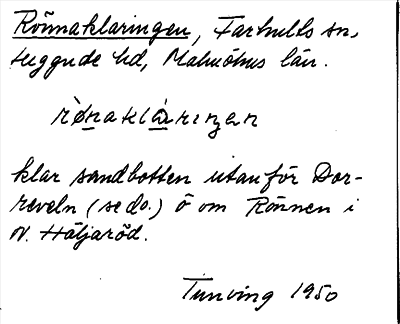 Rönnaklaringen, Farhults sn,
Luggude hd, Malmöhus län.
rǿnaklàriŋen
klar sandbotten utanför Dor-
reveln (se do.) ö om Rönnen i
N. Häljaröd.
Tunving 1950